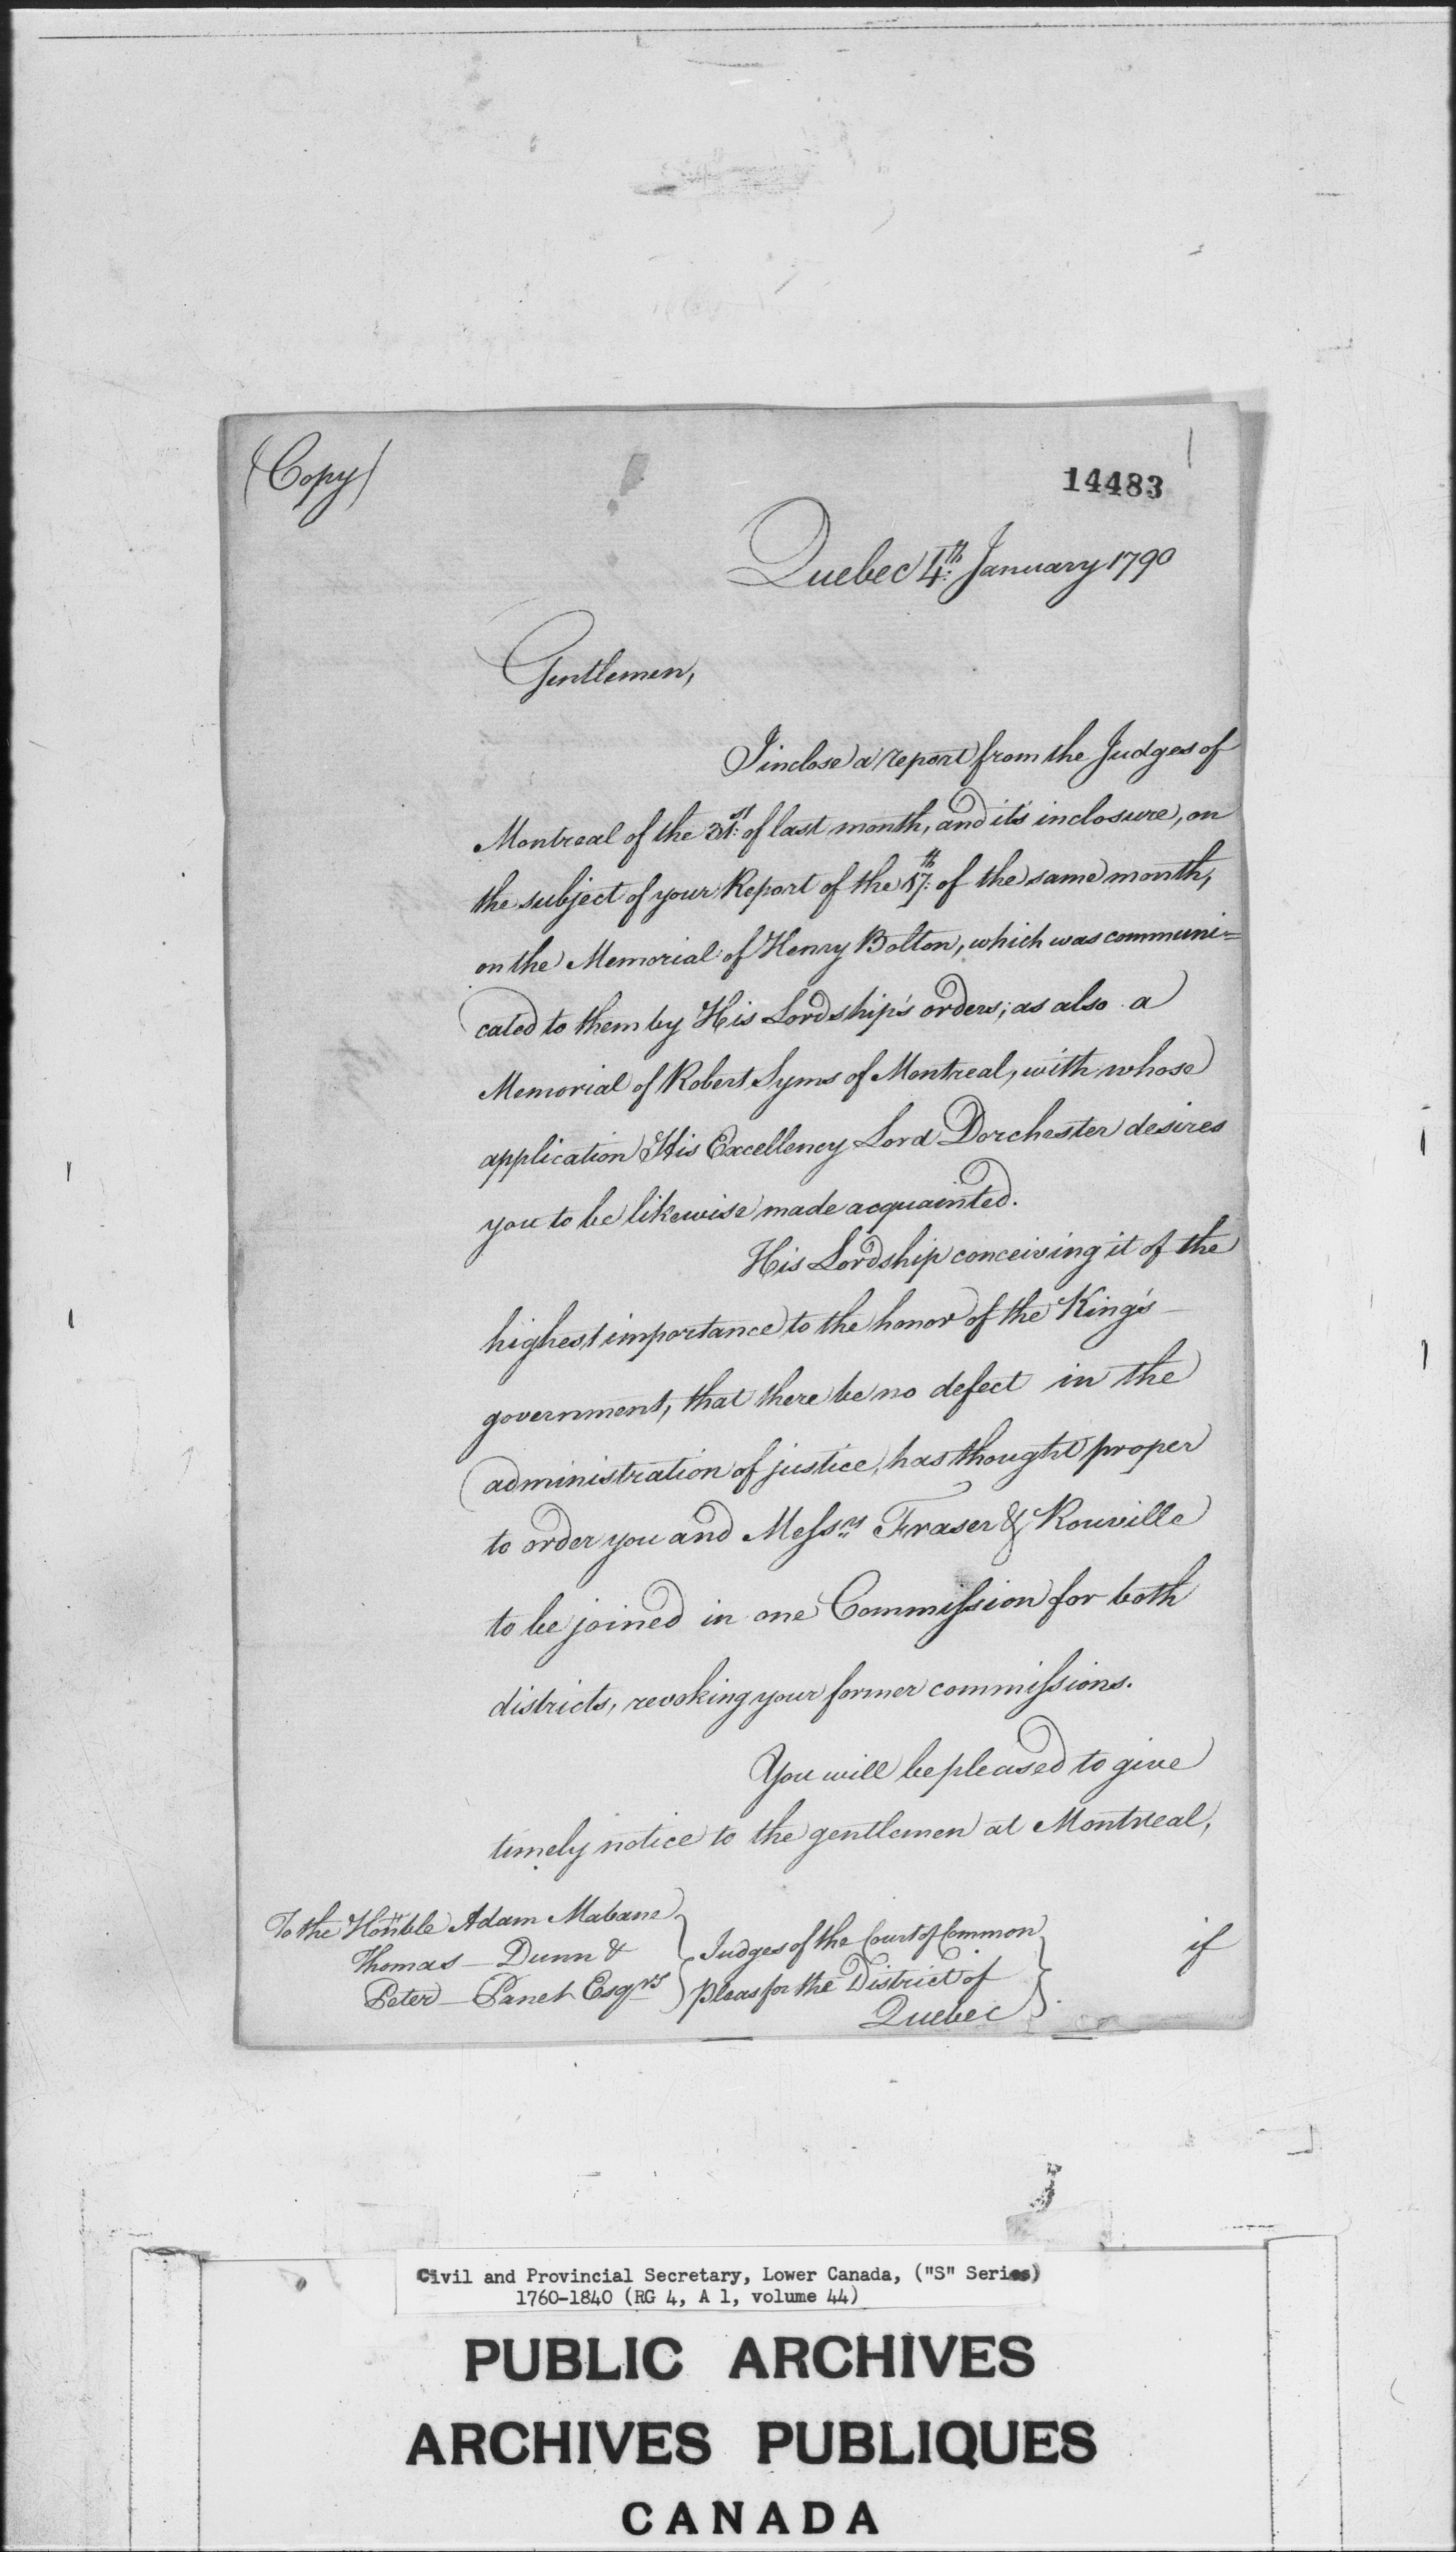 (Copy)
14483
Quebec 4th: January 1790
Gentlemen,
I inclose a report from the Judges of
Montreal of the 31st: of last month, and it's inclosure, on
the subject of your Report of the 17th: of the same month,
on the Memorial of Henry Bolton, which was communi=
cated to them by His Lordship's orders; as also a
Memorial of Robert Syms of Montreal, with whose
application His Excellency Lord Dorchester desires
you to be likewise made acquainted.
His Lordship conceiving it of the
highest importance to the honor of the King's
government, that there be no defect in the
administration of justice, has thought proper
to order you and Messrs Fraser & Rouville
to be joined in one Commission for both
districts, revoking your former commissions.
You will be pleased to give
timely notice to the gentlemen at Montreal,
To the Honble Adam Mabane
Thomas Dunn &
Peter Panet Esqrs
Judges of the Court of Common
Pleas for the District of
Quebec
if
Civil and Provincial Secretary, Lower Canada, ("S" Series)
1760-1840 (RG 4, A 1, volume 44)
PUBLIC ARCHIVES
ARCHIVES PUBLIQUES
CANADA